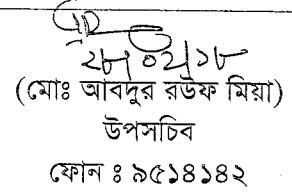 ২৮/০২/১৮
(মোঃ আবদুর রউফ মিয়া)
উপসচিব
ফোন ঃ ৯৫১৪১৪২